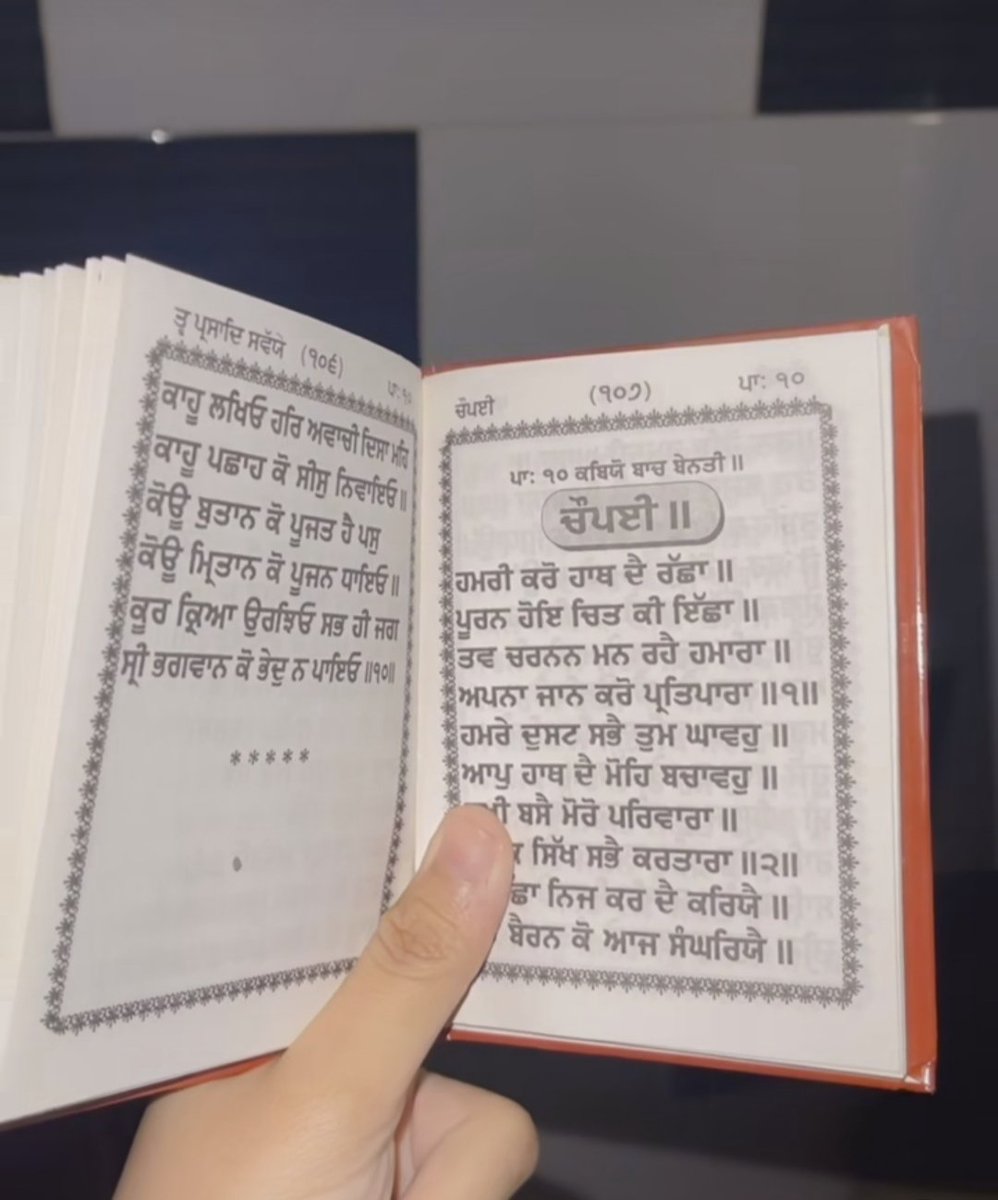 ਤ੍ਵ ਪ੍ਰਸਾਦਿ ਸਵੱਯੇ (੧੦੬) ਪਾ: ੧੦
ਕਾਹੂ ਲਖਿਓ ਹਰਿ ਅਵਾਚੀ ਦਿਸਾ ਮਹਿ
ਕਾਹੂ ਪਛਾਹ ਕੋ ਸੀਸੁ ਨਿਵਾਇਓ ॥
ਕੋਊ ਬੁਤਾਨ ਕੋ ਪੂਜਤ ਹੈ ਪਸੁ
ਕੋਊ ਮ੍ਰਿਤਾਨ ਕੋ ਪੂਜਨ ਧਾਇਓ ॥
ਕੂਰ ਕ੍ਰਿਆ ਉਰਝਿਓ ਸਭ ਹੀ ਜਗ
ਸ੍ਰੀ ਭਗਵਾਨ ਕੋ ਭੇਦੁ ਨ ਪਾਇਓ ॥੧੦॥
*****
ਚੌਪਈ (੧੦੭) ਪਾ: ੧੦
ਪਾ: ੧੦ ਕਬਿਯੋ ਬਾਚ ਬੇਨਤੀ ॥
ਚੌਪਈ ॥
ਹਮਰੀ ਕਰੋ ਹਾਥ ਦੈ ਰੱਛਾ ॥
ਪੂਰਨ ਹੋਇ ਚਿਤ ਕੀ ਇੱਛਾ ॥
ਤਵ ਚਰਨਨ ਮਨ ਰਹੈ ਹਮਾਰਾ ॥
ਅਪਨਾ ਜਾਨ ਕਰੋ ਪ੍ਰਤਿਪਾਰਾ ॥੧॥
ਹਮਰੇ ਦੁਸਟ ਸਭੈ ਤੁਮ ਘਾਵਹੁ ॥
ਆਪੁ ਹਾਥ ਦੈ ਮੋਹਿ ਬਚਾਵਹੁ ॥
ਬਸੈ ਮੋਰੋ ਪਰਿਵਾਰਾ ॥
ਸਿੱਖ ਸਭੈ ਕਰਤਾਰਾ ॥੨॥
ਨਿਜ ਕਰ ਦੈ ਕਰਿਯੈ ॥
ਬੈਰਨ ਕੋ ਆਜ ਸੰਘਰਿਯੈ ॥